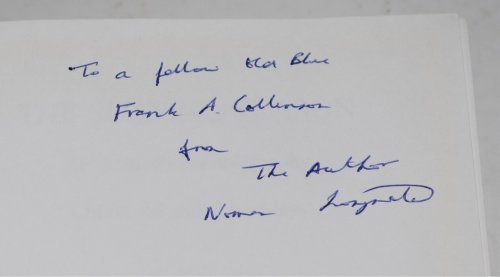 To a fellow Old Blue
Frank A. Collinson
from
The Author
Norman